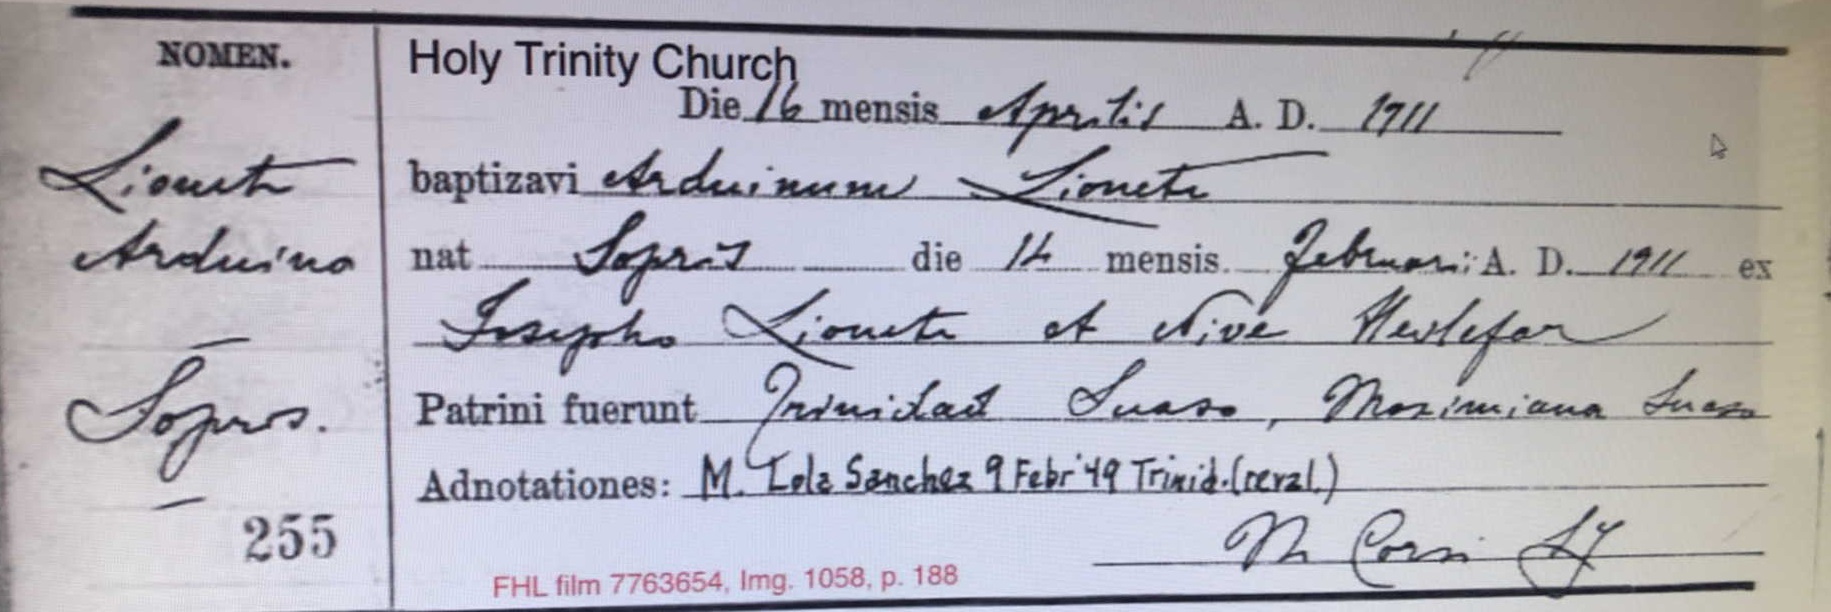 NOMEN.
Holy Trinity Church
Die 16 mensis Aprilis A. D. 1911
Lionetti
baptizavi Arduinum Lionetti
Arduino
nat Sopris die 14 mensis Februari: A. D. 1911 ex
Josepho Lionetti et Nive
Sopris.
Patrini fuerunt Trinidad Suaso, Maximiana Suaso
Adnotationes: M. Lola Sanchez 9 Febr '49 Trinid.
255
M Corsi SJ
FHL film 7763654, Img. 1058, p. 188